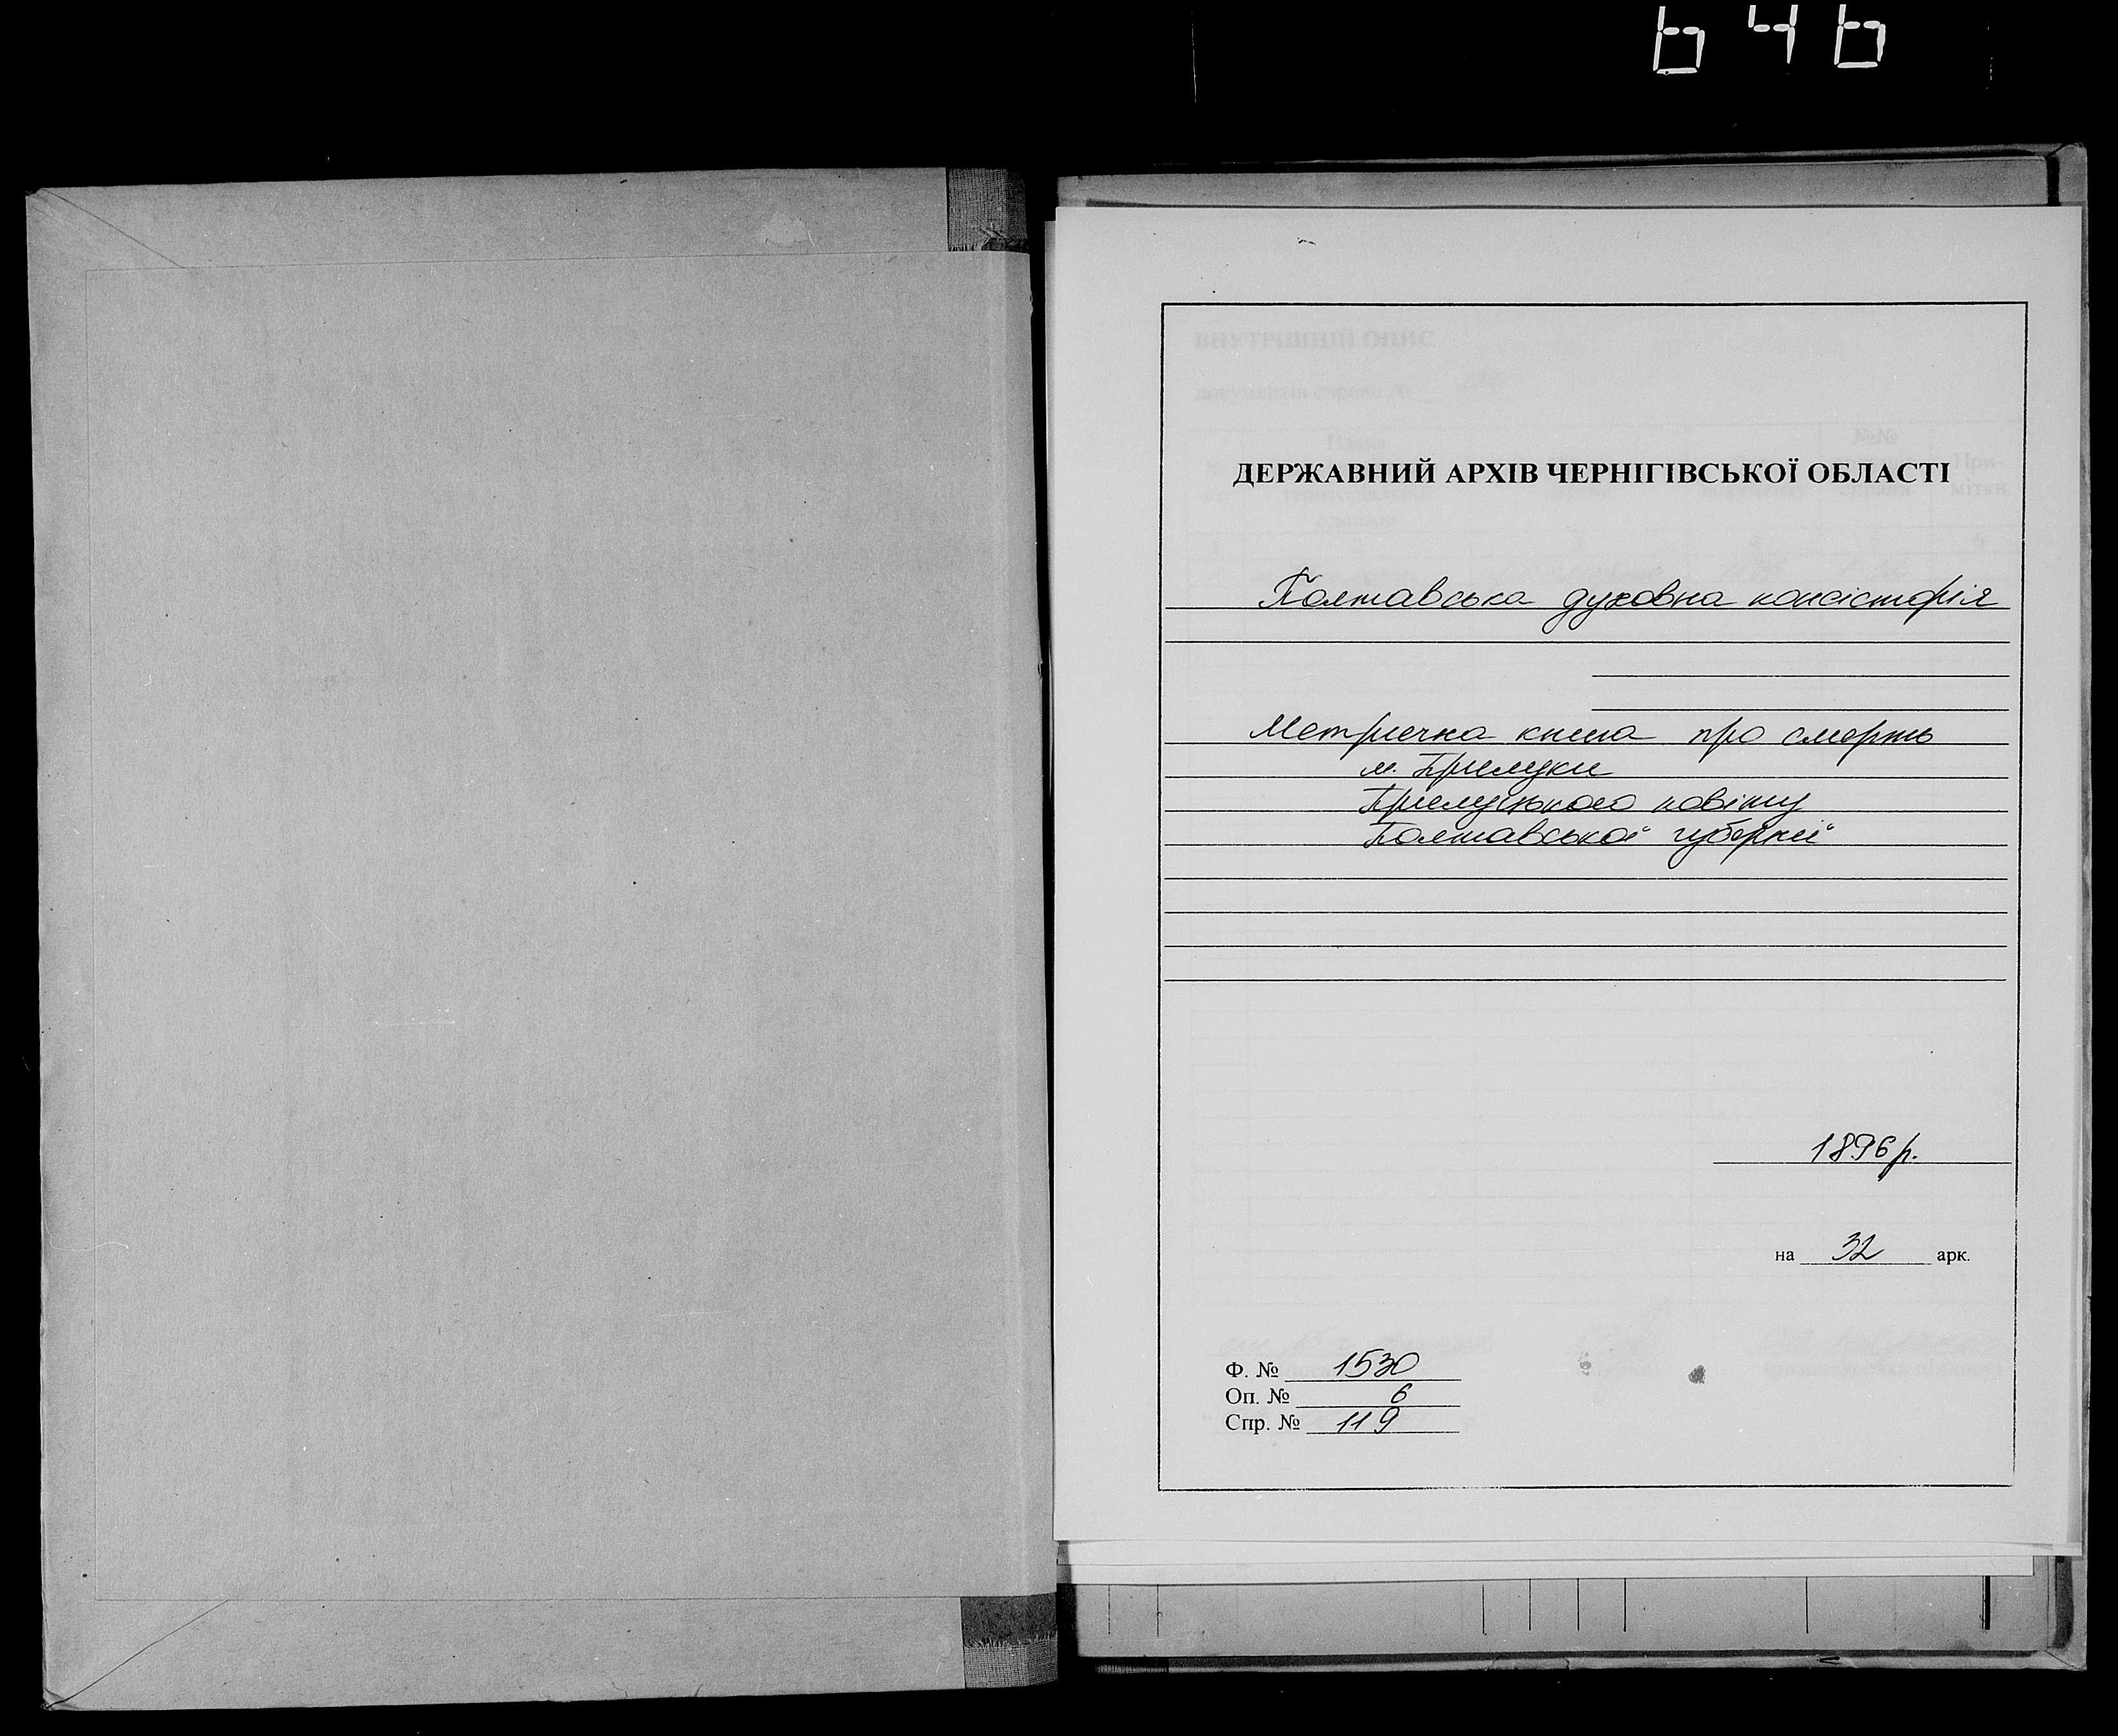 646
ДЕРЖАВНИЙ АРХІВ ЧЕРНІГІВСЬКОЇ ОБЛАСТІ
Полтавська духовна консісторія
Метрична книга про смерть
м. Прилуки
Прилуцького повіту
Полтавської губернії
1896 р.
на 32 арк.
Ф. № 1530
Оп. № 6
Спр. № 119